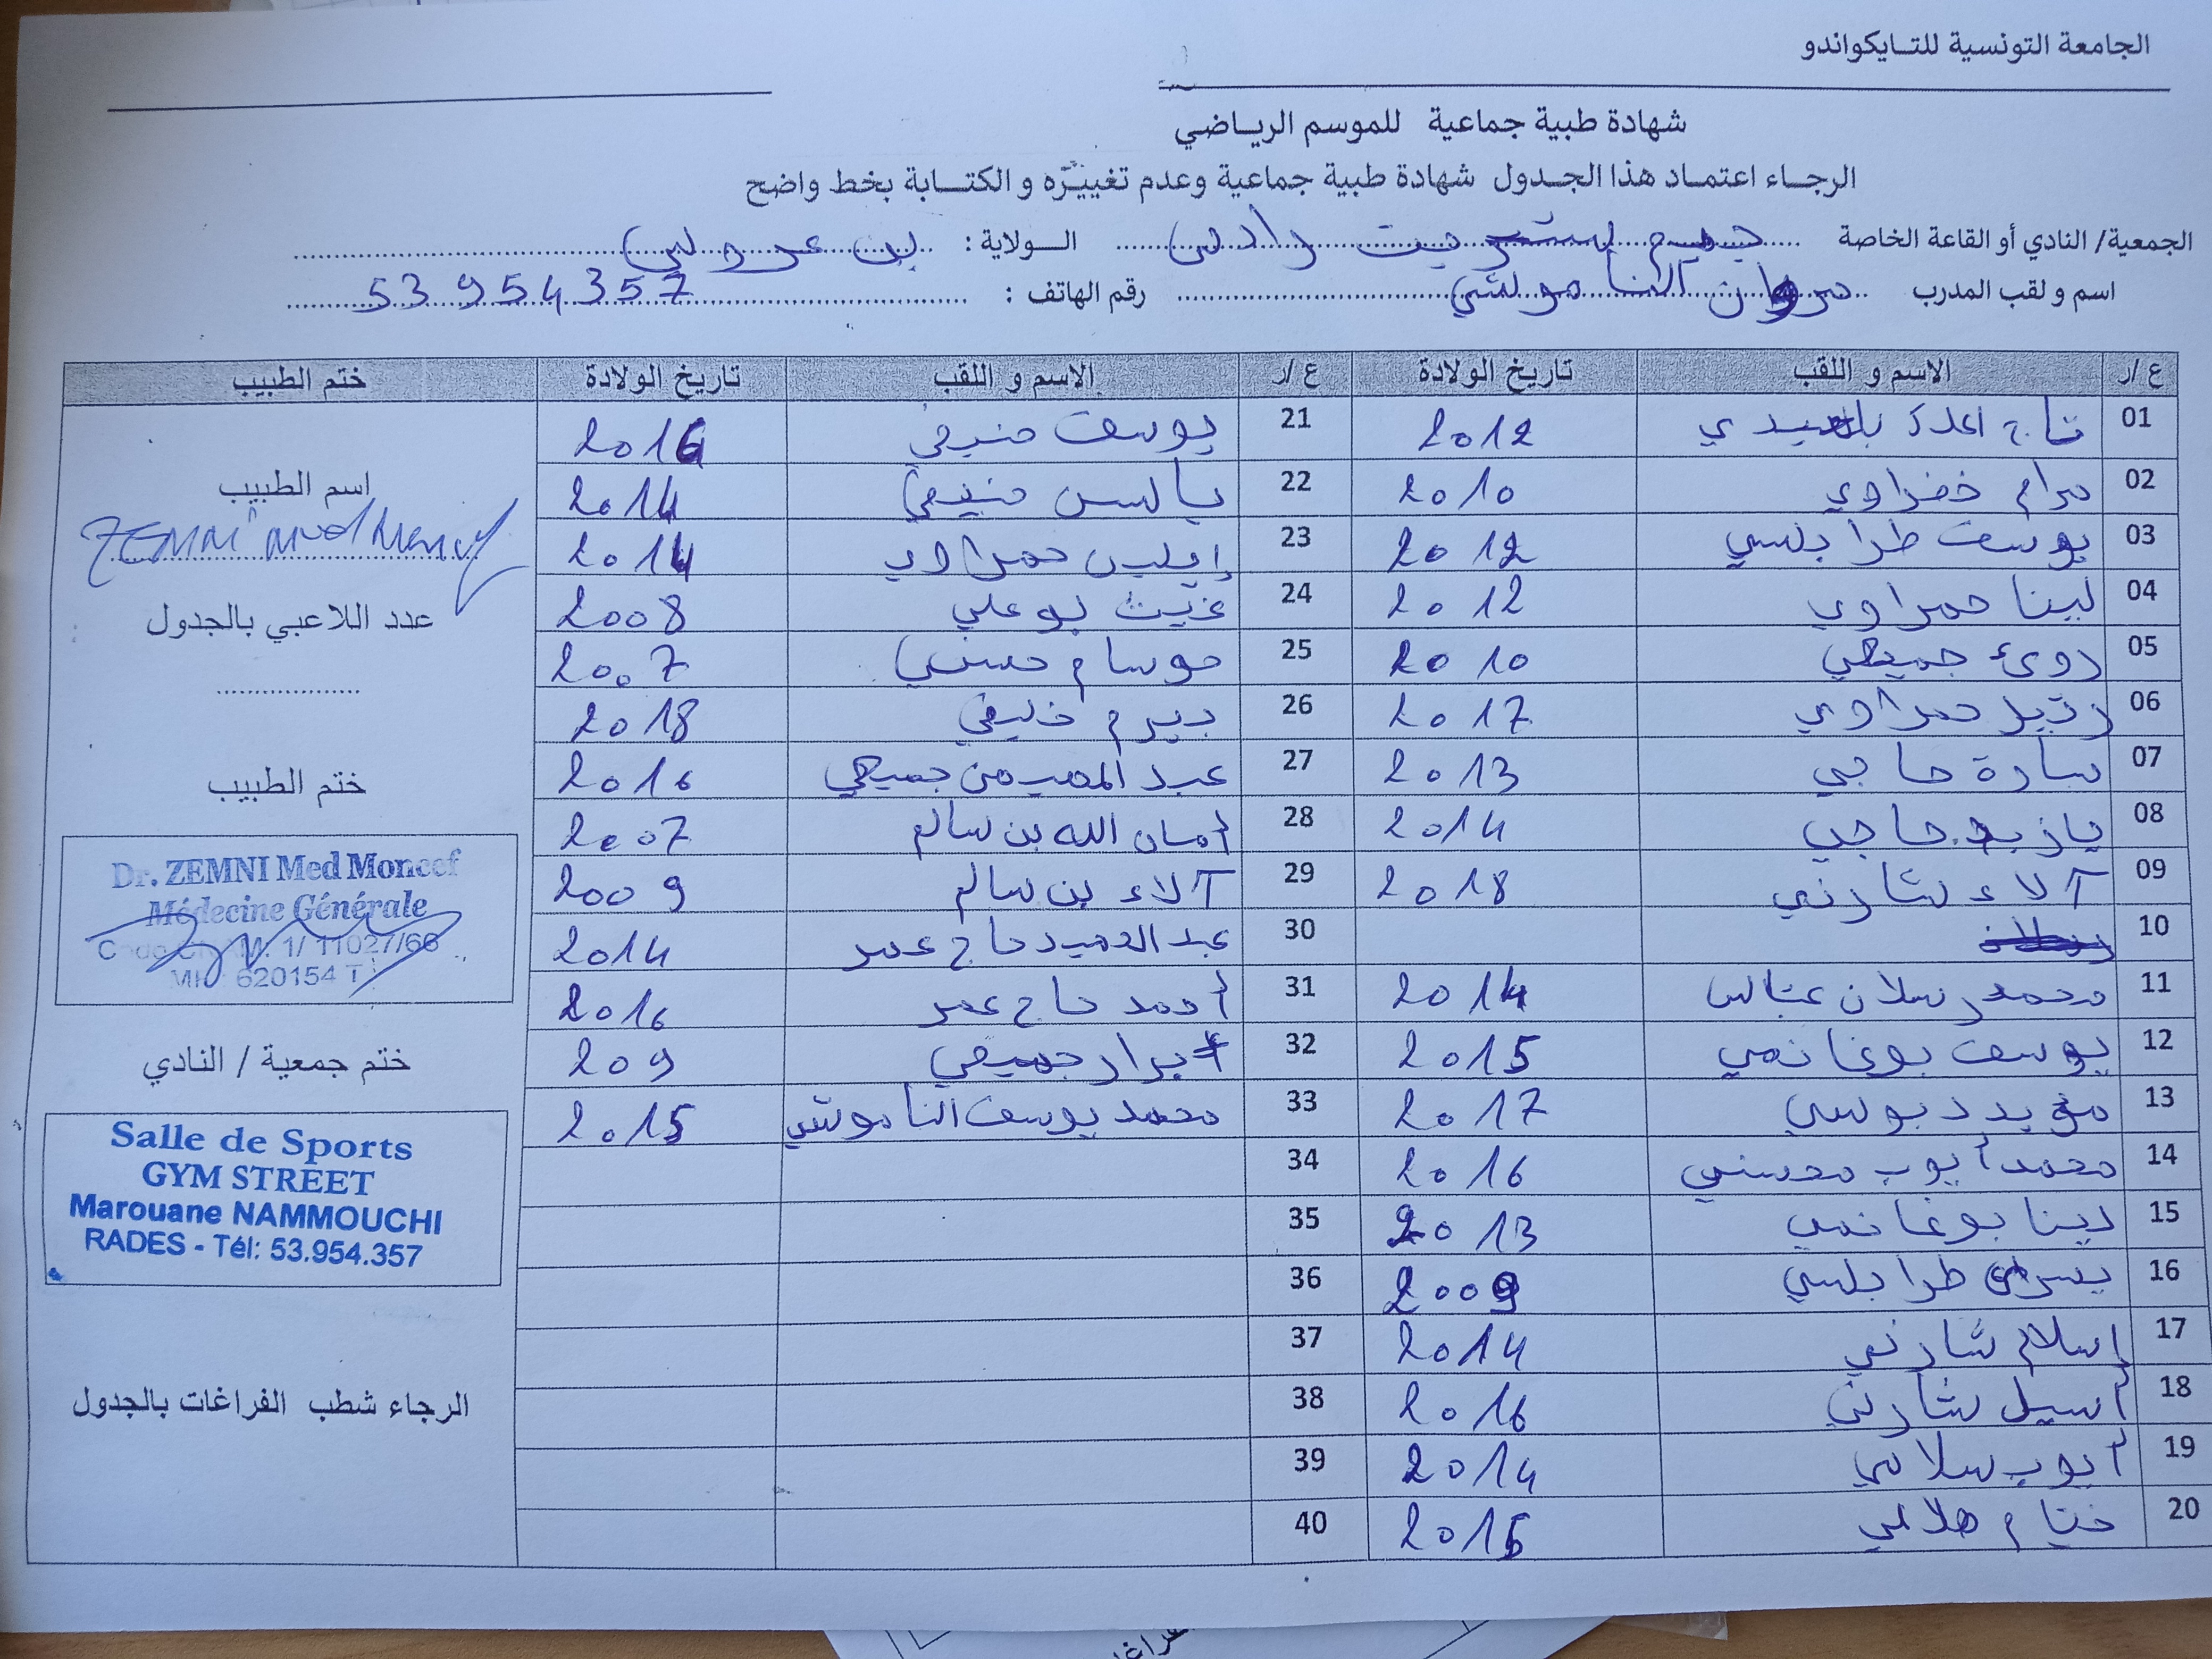 الجامعة التونسية للتـايكواندو
شهادة طبية جماعية للموسم الرياضي
الرجاء اعتماد هذا الجدول شهادة طبية جماعية وعدم تغييّره و الكتابة بخط واضح
الجمعية/ النادي أو القاعة الخاصة جيم ستريت رادس الـولاية : بن عروس
اسم و لقب المدرب مروان الناموشي رقم الهاتف : 53 954 357
ع /ر الاسم و اللقب تاريخ الولادة ع /ر الاسم و اللقب تاريخ الولادة ختم الطبيب
01 تاج 2012 21 يوسف منيفي 2016
02 مرام خضراوي 2010 22 ياسين منيفي 2014
03 يوسف طرابلسي 2012 23 إيلين حمراوي 2014
04 لينا حمراوي 2012 24 غيث بوعلي 2008
05 روئ جميعي 2010 25 حوسام حسني 2007
06 رتيل حمراوي 2017 26 بيرم خليفي 2018
07 سارة حاجي 2013 27 عبد المهيمن جميعي 2016
08 يازيد حاجي 2014 28 أمان الله بن سالم 2007
09 آلاء شارني 2018 29 آلاء بن سالم 2009
10 30 عبد الحميد حاج عمر 2014
11 محمد رسلان عباس 2014 31 أحمد حاج عمر 2016
12 يوسف بوغانمي 2015 32 أبرار جميعي 209
13 مؤيد دبوسي 2017 33 محمد يوسف الناموشي 2015
14 محمد أيوب محسني 2016 34
15 لينا بوغانمي 2013 35
16 يسرى طرابلسي 2009 36
17 إسلام شارني 2014 37
18 أسيل شارني 2016 38
19 أيوب سلامي 2014 39
20 ختام هلالي 2015 40
اسم الطبيب
ZEMNI Med Moncef
عدد اللاعبي بالجدول
ختم الطبيب
Dr. ZEMNI Med Moncef
Médecine Générale
Code C.N.A.M. 1/ 11027/66
MF: 620154 T
ختم جمعية / النادي
Salle de Sports
GYM STREET
Marouane NAMMOUCHI
RADES - Tél: 53.954.357
الرجاء شطب الفراغات بالجدول